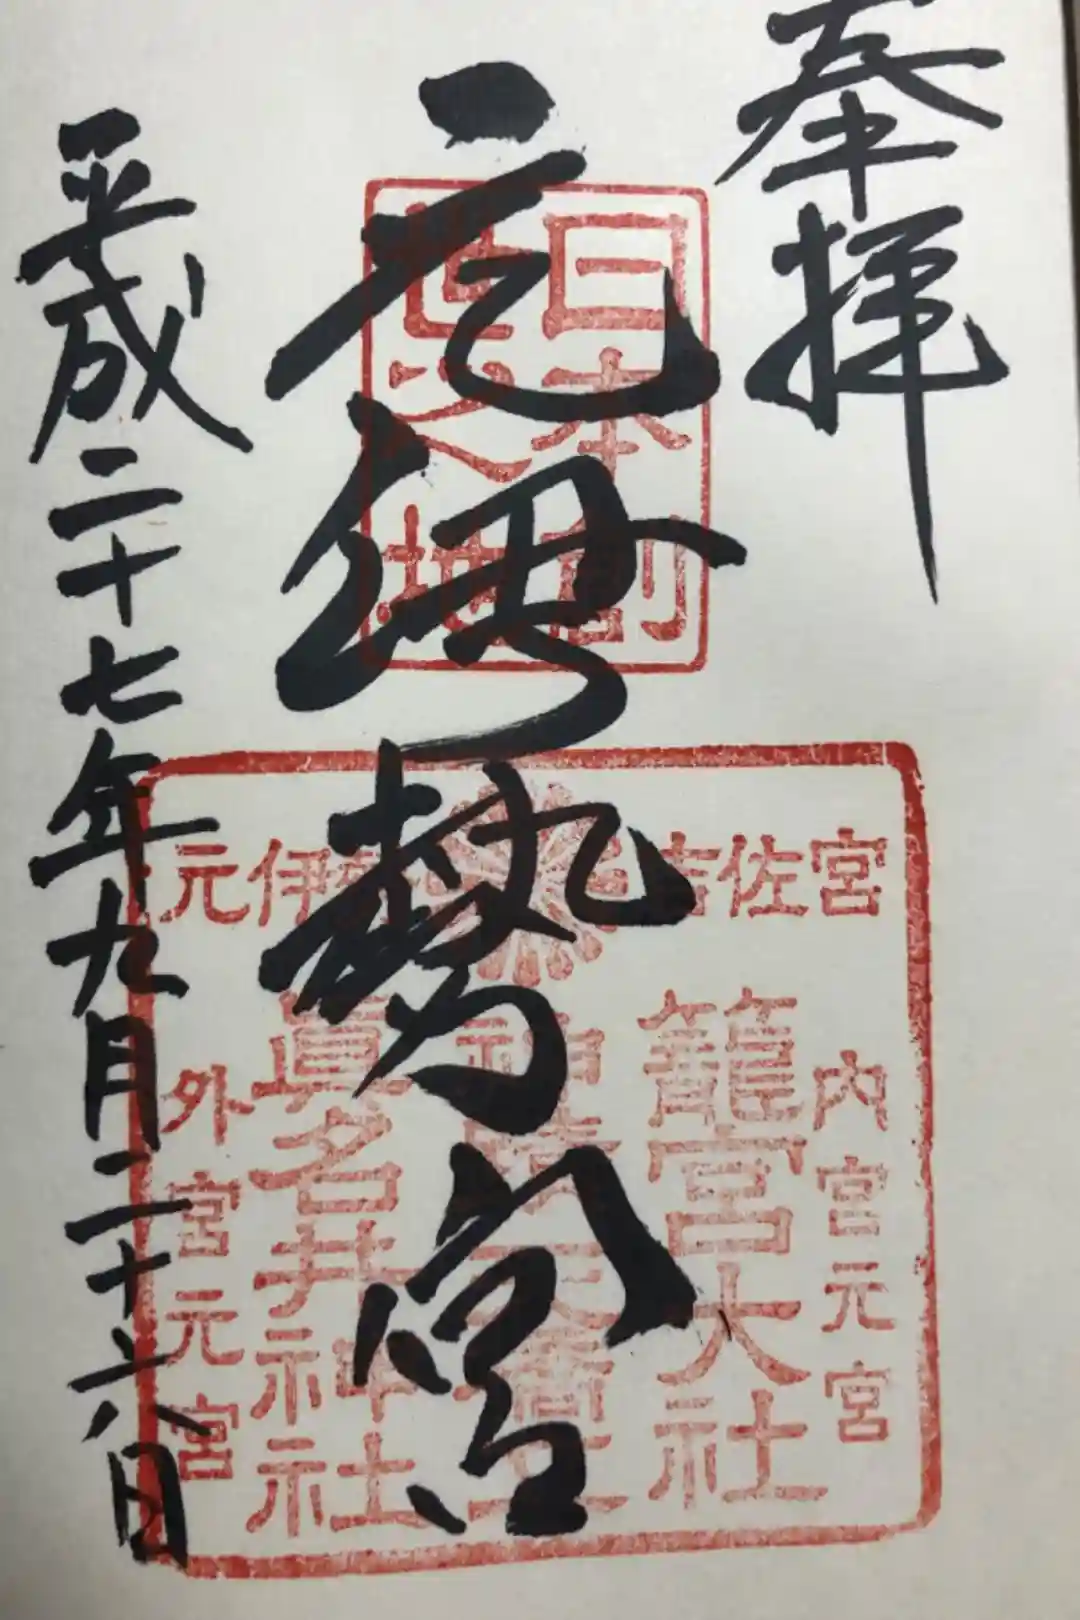 奉拝
元伊勢宮
平成二十七年九月二十六日
日本
世之
地
吉佐宮
元伊
内宮元宮
籠宮大社
眞名井神社
外宮元宮